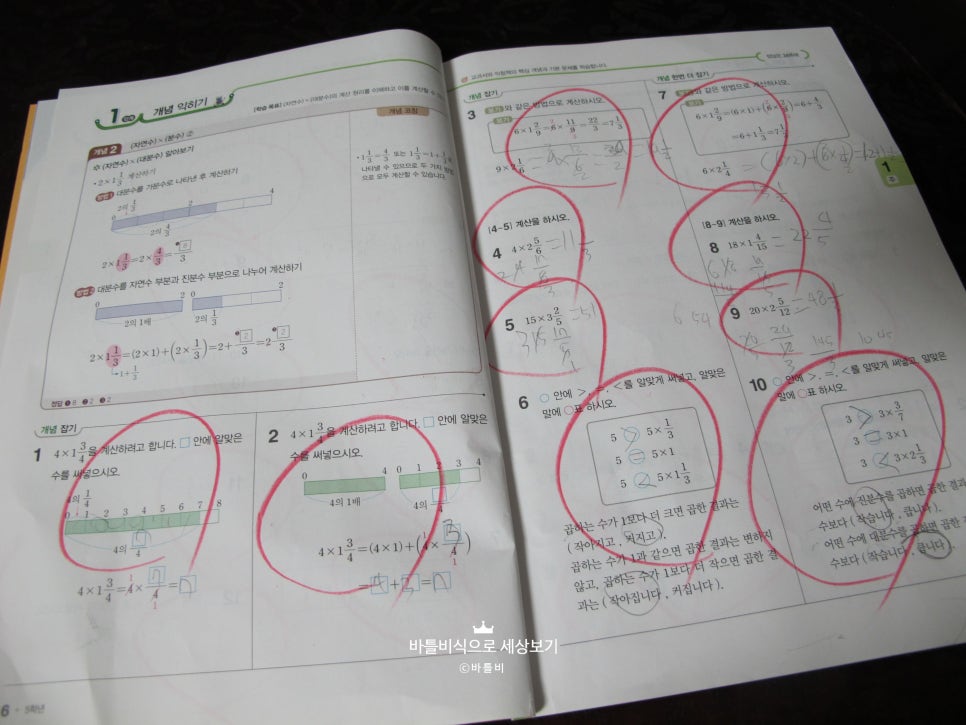 1
개념 익히기
[학습 목표] (자연수)×(대분수)의 계산 원리를 이해하고 이를 계산할 수
개념 2 (자연수)×(분수) ②
(자연수)×(대분수) 알아보기
• 2×1 1/3 계산하기
방법1 대분수를 가분수로 나타낸 후 계산하기
2의 1/3
0 2 4
2의 4/3
2×1 1/3=2×4/3=8/3
방법2 대분수를 자연수 부분과 진분수 부분으로 나누어 계산하기
0 2 0 2
2의 1배 2의 1/3
2×1 1/3=(2×1)+(2×1/3)=2+2/3=2 2/3
1+1/3
정답 ❶ 8 ❷ 2 ❸ 2
개념 코칭
• 1 1/3=4/3 또는 1 1/3=1+1/3로
나타낼 수 있으므로 두 가지 방법
으로 모두 계산할 수 있습니다.
개념 잡기
1 4×1 3/4을 계산하려고 합니다. □ 안에 알맞은
수를 써넣으시오.
4의 1/4
0 1 2 3 4 5 6 7 8
4의 □/4
4×1 3/4=4×7/4=7
2 4×1 3/4을 계산하려고 합니다. □ 안에 알맞은
수를 써넣으시오.
0 4 0 1 2 3 4
4의 1배 4의 □/4
4×1 3/4=(4×1)+(4×3/4)
=4+3=7
6 • 5학년
교과서와 익힘책의 핵심 개념과 기본 문제를 학습합니다.
개념 잡기
3 보기와 같은 방법으로 계산하시오.
보기
6×1 2/9=6×11/9=22/3=7 1/3
9×2 1/6
[4~5] 계산을 하시오.
4 4×2 5/6 =11 1/3
5 15×3 2/5 =51
6 ○ 안에 >, =, <를 알맞게 써넣고, 알맞은
말에 ○표 하시오.
5 > 5×1/3
5 = 5×1
5 < 5×1 1/3
곱하는 수가 1보다 더 크면 곱한 결과는
(작아지고, 커지고),
곱하는 수가 1과 같으면 곱한 결과는 변하지
않고, 곱하는 수가 1보다 더 작으면 곱한 결
과는 (작아집니다, 커집니다).
개념 한번 더 잡기
7 보기와 같은 방법으로 계산하시오.
보기
6×1 2/9=(6×1)+(6×2/9)=6+4/3
=6+1 1/3=7 1/3
6×2 1/4
1
주
[8~9] 계산을 하시오.
8 18×1 4/15 =22 4/5
9 20×2 5/12
10 ○ 안에 >, =, <를 알맞게 써넣고, 알맞은
말에 ○표 하시오.
3 > 3×3/7
3 = 3×1
3 < 3×2 1/3
어떤 수에 진분수를 곱하면 곱한 결과
수보다 (작습니다, 큽니다).
어떤 수에 대분수를 곱하면 곱한 결과
수보다 (작습니다, 큽니다).
바틀비식으로 세상보기
©바틀비